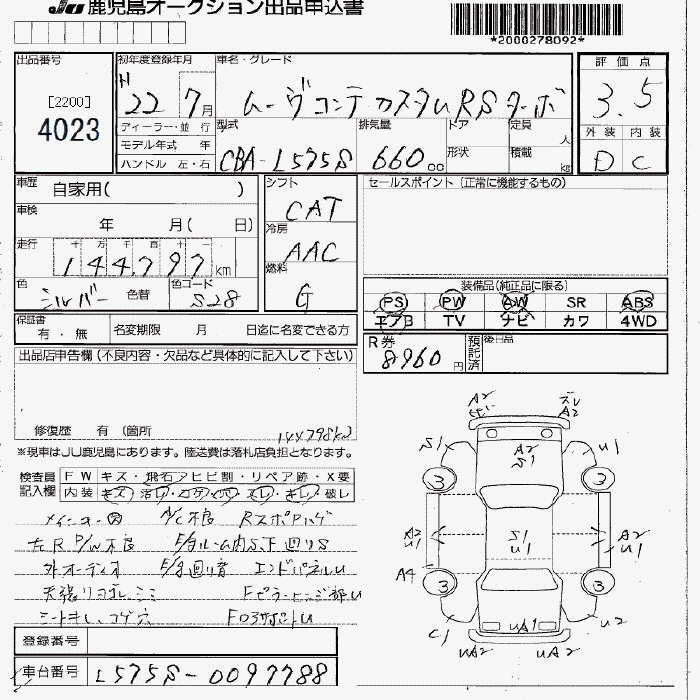 JU 鹿児島オークション出品申込書
*2000278092*
出品番号
[2200]
4023
初年度登録年月
H 22 7月
ディーラー・並 行
モデル年式 年
ハンドル 左・右
車名・グレード
ムーヴコンテ カスタム RS ターボ
型式
CBA-L575S
排気量
660 cc
ドア
形状
定員
人
積載
kg
評価点
3.5
外装 内装
D C
車歴 自家用( )
車検
年 月( 日)
走行 十 万 千 百 十 一
144,797 km
色
シルバー 色替
色コード
S28
シフト
CAT
冷房
AAC
燃料
G
セールスポイント (正常に機能するもの)
装備品(純正品に限る)
PS PW AW SR ABS
エアB TV ナビ カワ 4WD
保証書
有・無
名変期限 月 日迄に名変できる方
R券
8960 円
預託済
後日品
出品店申告欄(不良内容・欠品など具体的に記入して下さい)
修復歴 有 (箇所
144798km
※現車はJU鹿児島にあります。陸送費は落札店負担となります。
検査員記入欄
FW キズ・飛石アヒビ割・リペア跡・X要
内装 キズ・汚レ・コゲ・穴・スレ・キレ・破レ
A/C不良
左R P/W不良 E/gルーム内S、下回りS
外オーディオ E/g回り音 エンドパネルU
天張リヨゴレ、シミ Fピラーヒンジ部U
シートキレ、コゲ穴
A2 A2
A2
S1
S1 U1
3 3
A2
U1
S1
U1
A2
U1
A4
3 3
C1 U2
UA1
UA2 UA2
登録番号
車台番号 L575S-0097788